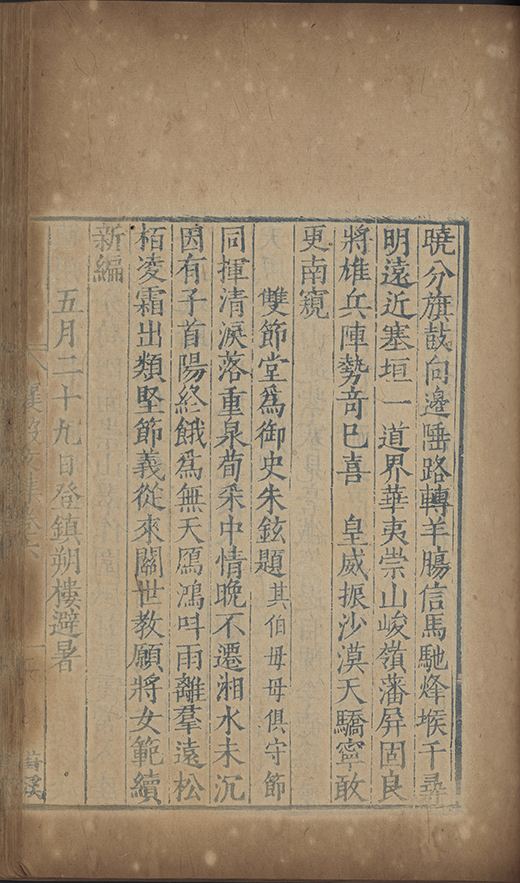 曉分旗鼓向邊陲路轉羊膓信馬馳烽堠千尋
明遠近塞垣一道界華夷崇山峻嶺藩屏固良
將雄兵陣勢奇巳喜　皇威振沙漠天驕寧敢
更南窺
雙節堂爲御史朱鉉題其伯母母俱守節
同揮清淚落重泉荀釆中情晚不遷湘水未沉
因有子首陽終餓爲無天鴈鴻呌雨離羣遠松
栢凌霜出類堅節義從來關世教願將女範續
新編
五月二十九日登鎮朔樓避暑
襄毅文集卷六